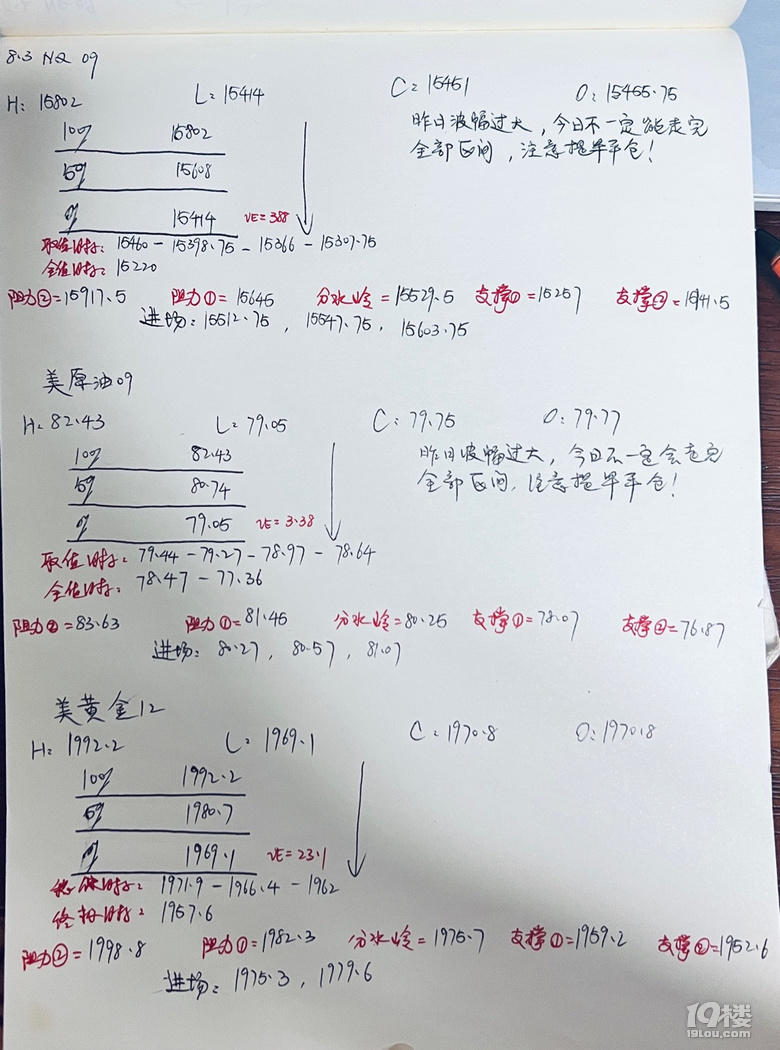 8.3 NQ 09
H: 15802 L: 15414 C: 15451 O: 15455.75
昨日波幅过大，今日不一定能走完
全部区间，注意提早平仓！
100% 15802
50% 15608
0% 15414 VE=388
取值目标: 15460 - 15398.75 - 15366 - 15307.75
全值目标: 15220
阻力②=15917.5 阻力①=15645 分水岭=15529.5 支撑①=15257 支撑②=15141.5
进场: 15512.75，15547.75，15603.75
美原油09
H: 82.43 L: 79.05 C: 79.75 O: 79.77
昨日波幅过大，今日不一定会走完
全部区间，注意提早平仓！
100% 82.43
50% 80.74
0% 79.05 VE=3.38
取值目标: 79.44 - 79.27 - 78.97 - 78.64
全值目标: 78.47 - 77.36
阻力②=83.63 阻力①=81.45 分水岭=80.25 支撑①=78.07 支撑②=76.87
进场: 80.27，80.57，81.07
美黄金12
H: 1992.2 L: 1969.1 C: 1970.8 O: 1970.8
100% 1992.2
50% 1980.7
0% 1969.1 VE=23.1
目标: 1971.9 - 1966.4 - 1962
终极目标: 1957.6
阻力②=1998.8 阻力①=1982.3 分水岭=1975.7 支撑①=1959.2 支撑②=1952.6
进场: 1975.3，1979.6
19楼
19lou.com